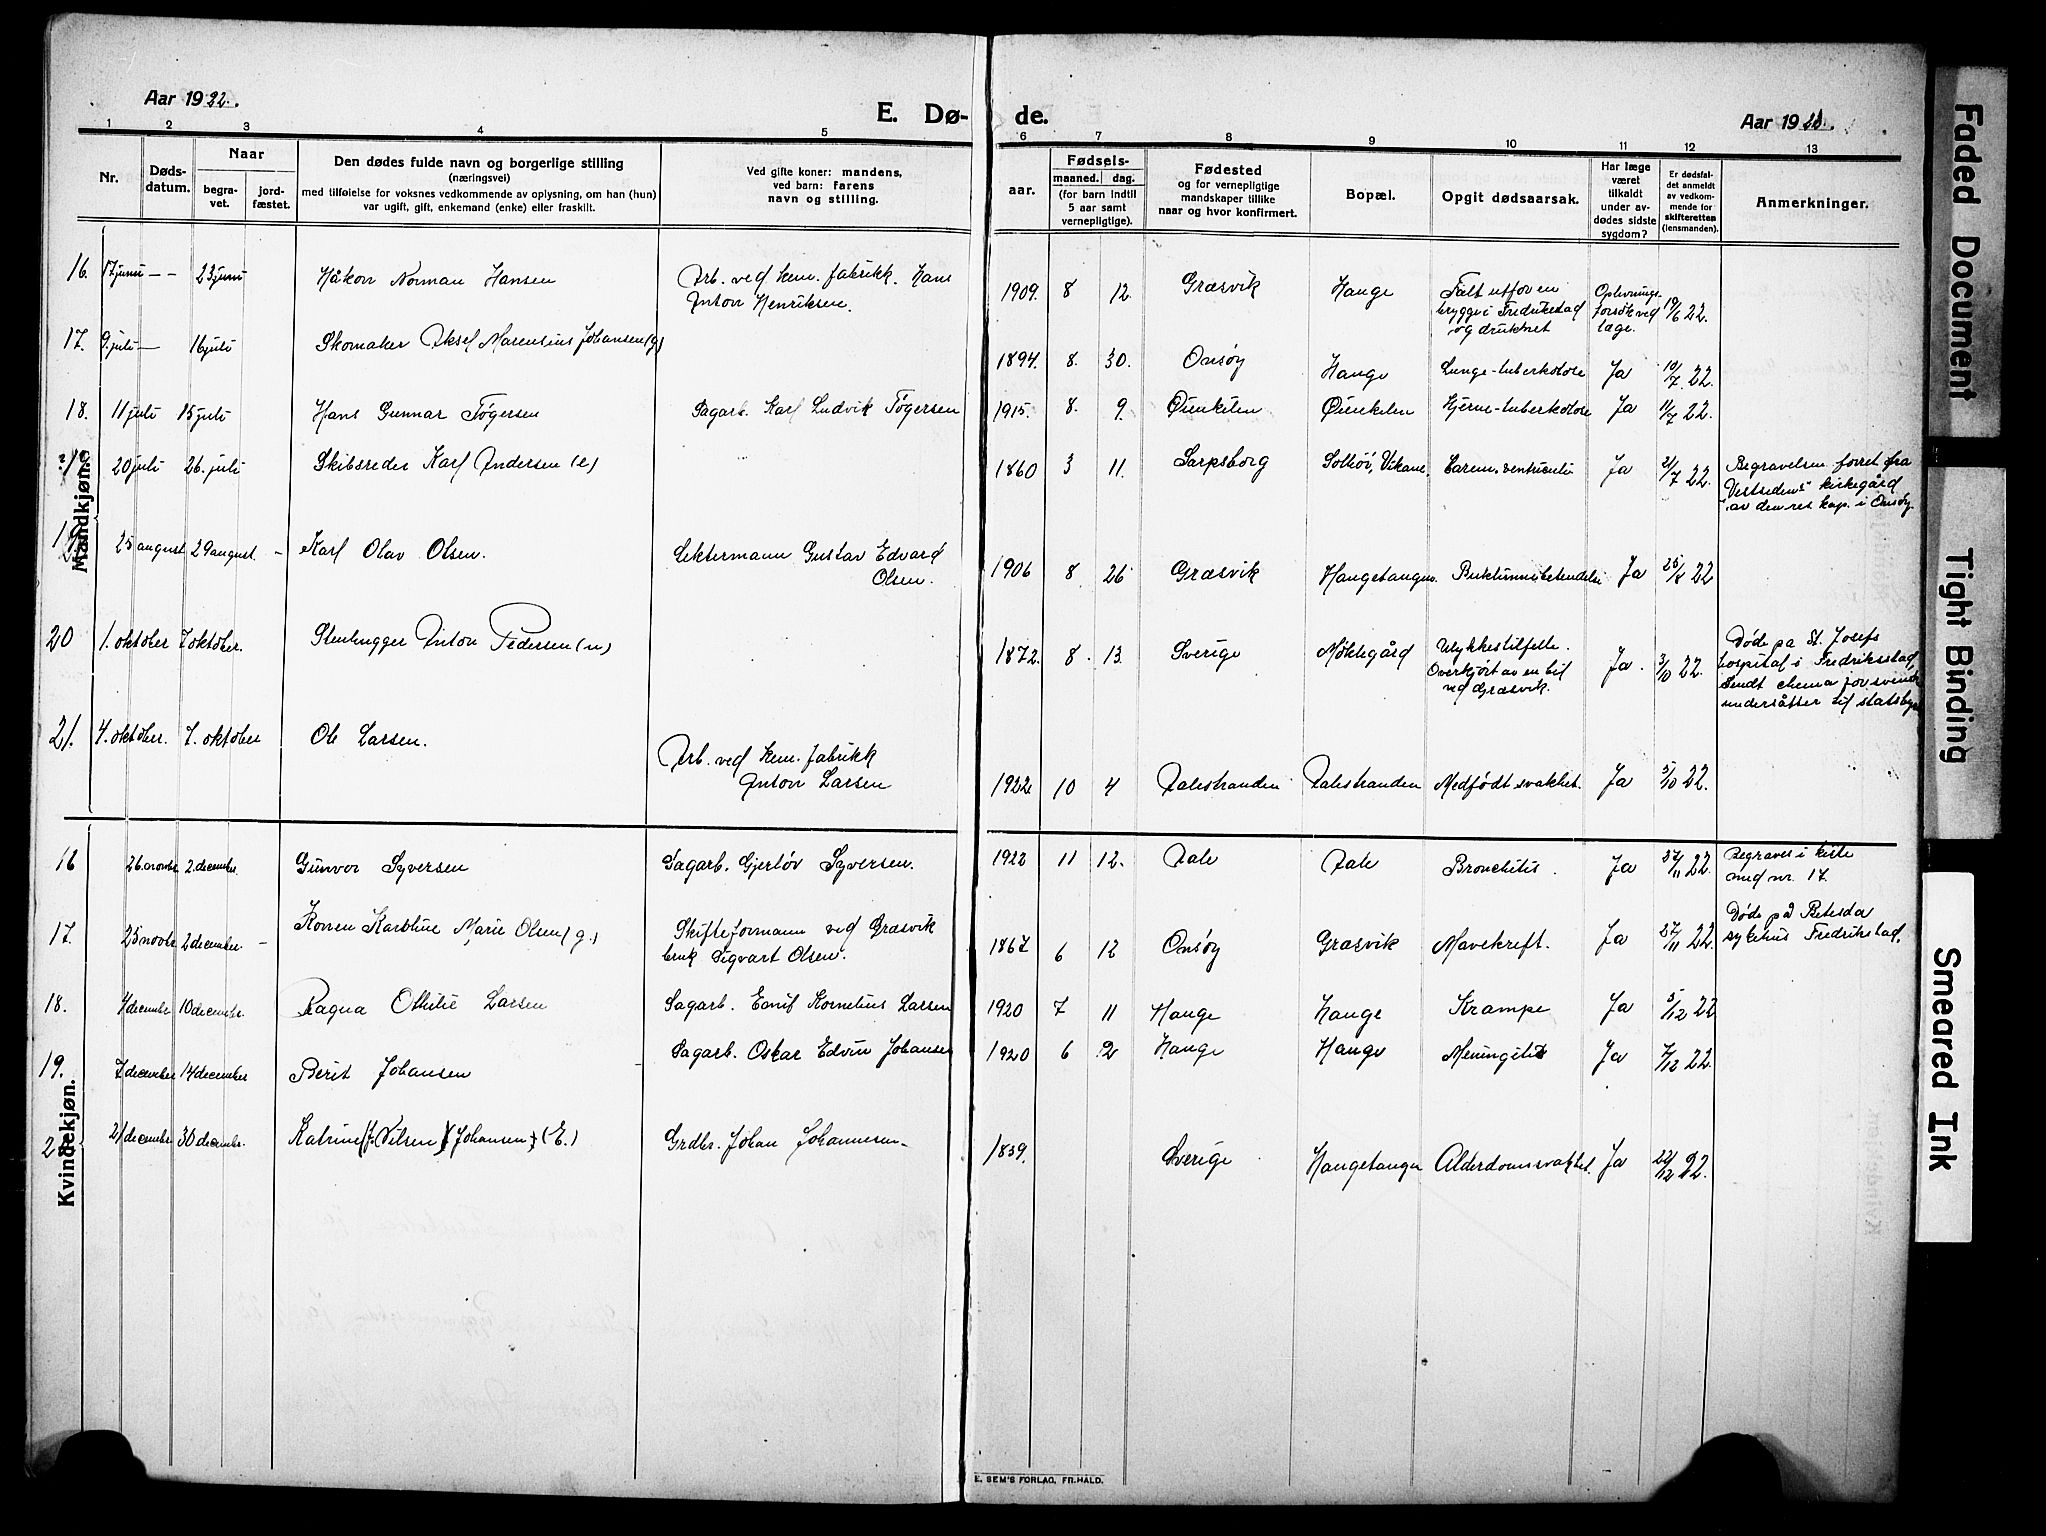 Aar 1922.
E. Dø-
de.
Aar 19
1 2 3 4 5 6 7 8 9 10 11 12 13
Nr.
Døds-
datum.
Naar
begra-
vet.
jord-
fæstet.
Den dødes fulde navn og borgerlige stilling
(næringsvei)
med tilføielse for voksnes vedkommende av oplysning, om han (hun)
var ugift, gift, enkemand (enke) eller fraskilt.
Ved gifte koner: mandens,
ved barn: farens
navn og stilling.
aar.
Fødsels-
maaned. dag.
(for barn indtil
5 aar samt
vernepligtige).
Fødested
og for vernepligtige
mandskaper tillike
naar og hvor konfirmert.
Bopæl.
Opgit dødsaarsak.
Har læge
været
tilkaldt
under av-
dødes sidste
sygdom?
Er dødsfal-
det anmeldt
av vedkom-
mende for
skifteretten
(lensmanden).
Anmerkninger.
Mandkjøn.
16. 17 juni — 23 juni Håkon Norman Hansen Arb. ved kem. fabrikk. Hans
Anton Henriksen. 1909. 8 12. Græsvik Hauge Falt utfor en
brygge i Fredrikstad
og druknet Oplivnings-
forsøk ved
læge. 19/6 22.
17. 9. juli — 16 juli Skomaker Aksel Marensius Johansen (g) 1894. 8. 30. Onsøy Hauge Lunge-tuberkolose Ja 10/7 22.
18. 11 juli 15 juli Hans Gunnar Tøgersen Sagarb. Karl Ludvik Tøgersen 1915. 8. 9. Øienkilen Øienkilen Hjerne-tuberkolose Ja 11/7 22.
20 juli 26. juli Skibsreder Karl Andersen (e) 1860 3 11. Sarpsborg Solhøi, Vikane, Carcin. ventriculi Ja 21/7 22. Begravelsen forret. fra
"Vestsidens" kirkegård
av den res. kap. i Onsøy.
19. 25 august 29 august. — Karl Olav Olsen. Liktermann Gustav Edvard
Olsen. 1906 8 26 Græsvik Haugetangen. Buktinnsbetendelse Ja 25/8 22
20 1. oktober 7 oktober. Stenhugger Anton Pedersen (u) 1872. 8. 13. Sverige Møklegård Ulykkestilfelle.
Overkjørt av en bil
ved Græsvik. Ja. 3/10 22. Døde på St. Josefs
hospital i Fredriksstad,
Sendt chema for svenske
undersåtter til statsbyr
21. 4. oktober. 7. oktober Ole Larsen. Arb. ved kem. fabrikk
Anton Larsen 1922 10 4 Ålestranden Ålestranden Medfødt svakhet. Ja 5/10 22.
Kvindekjøn.
16 26. novbr 2 december. Gunvor Syversen Sagarb. Gjerløv Syversen. 1922 11 12. Åle Åle Bronchitis. Ja 27/11 22. Begraves i kiste
med nr. 17.
17. 25 novbr 2 december. — Konen Karoline Marie Olsen (g.) Skifteformann ved Græsvik
bruk Sigvart Olsen. 1867 6 12 Onsøy Græsvik Mavekreft. Ja 27/11 22. Døde på Betesda
sykehus Fredrikstad.
18. 4 decembr 10 decembr. Ragna Othilie Larsen Sagarb. Emil Kornelius Larsen 1920 7 11 Hauge Hauge Krampe Ja 5/12 22
19. 7 december 14 december Berit Johansen Sagarb. Oskar Edvin Johansen 1920 6 2 Hauge Hauge Meningitis Ja 7/12 22.
21 decembr. 30 decembr. Katrine (f. Nilsen) (Johansen) (E.) Grdbr. Johan Johannesen. 1839. Sverige Haugetangen Alderdomssvakhet. Ja 22/12 22.
E. SEM'S FORLAG, FR.HALD.
Faded Document
Tight Binding
Smeared Ink